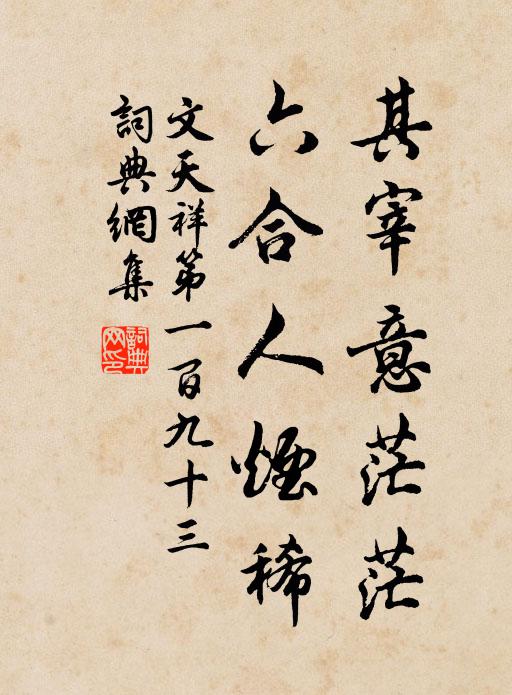 其宰意茫茫
六合人煙稀
文天祥第一百九十三
詞典網集
詞典網印